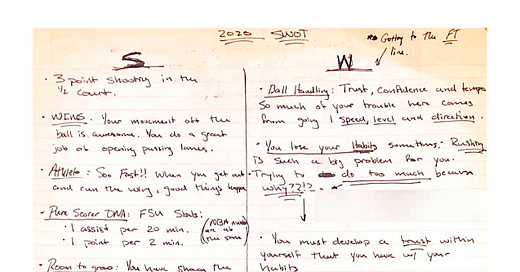 2020 SWOT
* Getting to the FT
line.
S
W
· 3 point shooting in the
1/2 court.
· WINGS: Your movement off the
ball is awesome. You do a great
job of opening passing lanes.
· Athlete = Soo Fast!! When you get out
and run the wing, good things happen
· Pure Scorer DNA: FSU Stats:
· 1 assist per 20 min.
· 1 point per 2 min.
(NBA
the same)
· Room to grow: You have shown the
· Ball Handling: Trust, confidence and tempo
So much of your trouble here comes
from going 1 speed, level and direction.
· You lose your Habits sometimes. Rushing
is such a big problem for you.
· Trying to do too much because
why??!?
· You must develop a trust within
yourself that you have w/ your
habits